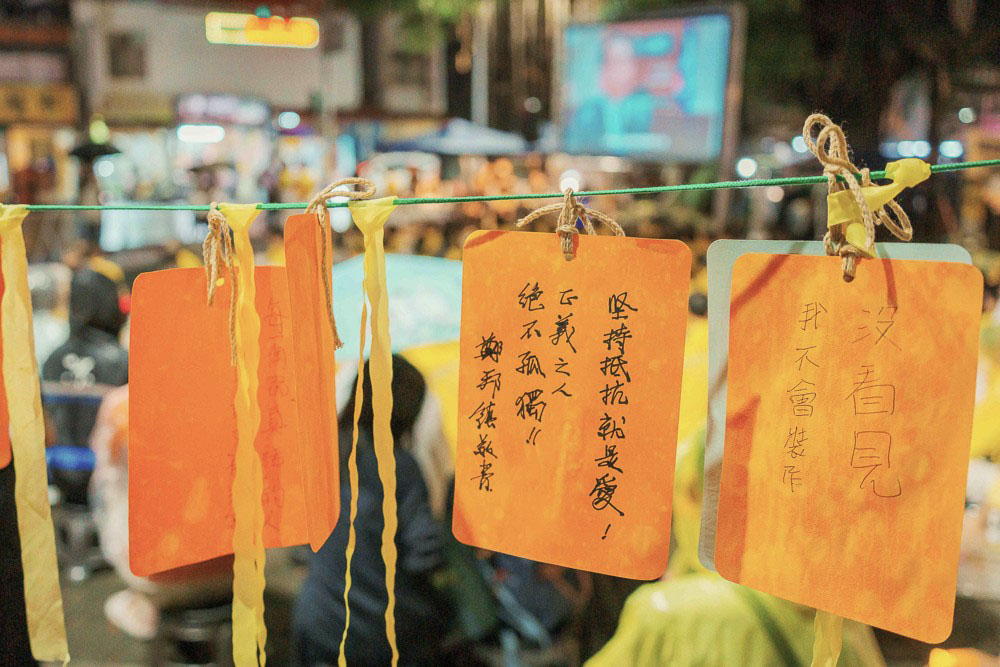 坚持抵抗就是愛！
正義之人
絕不孤獨!!
鄭邦鎮敬書
我不會裝作
沒看見